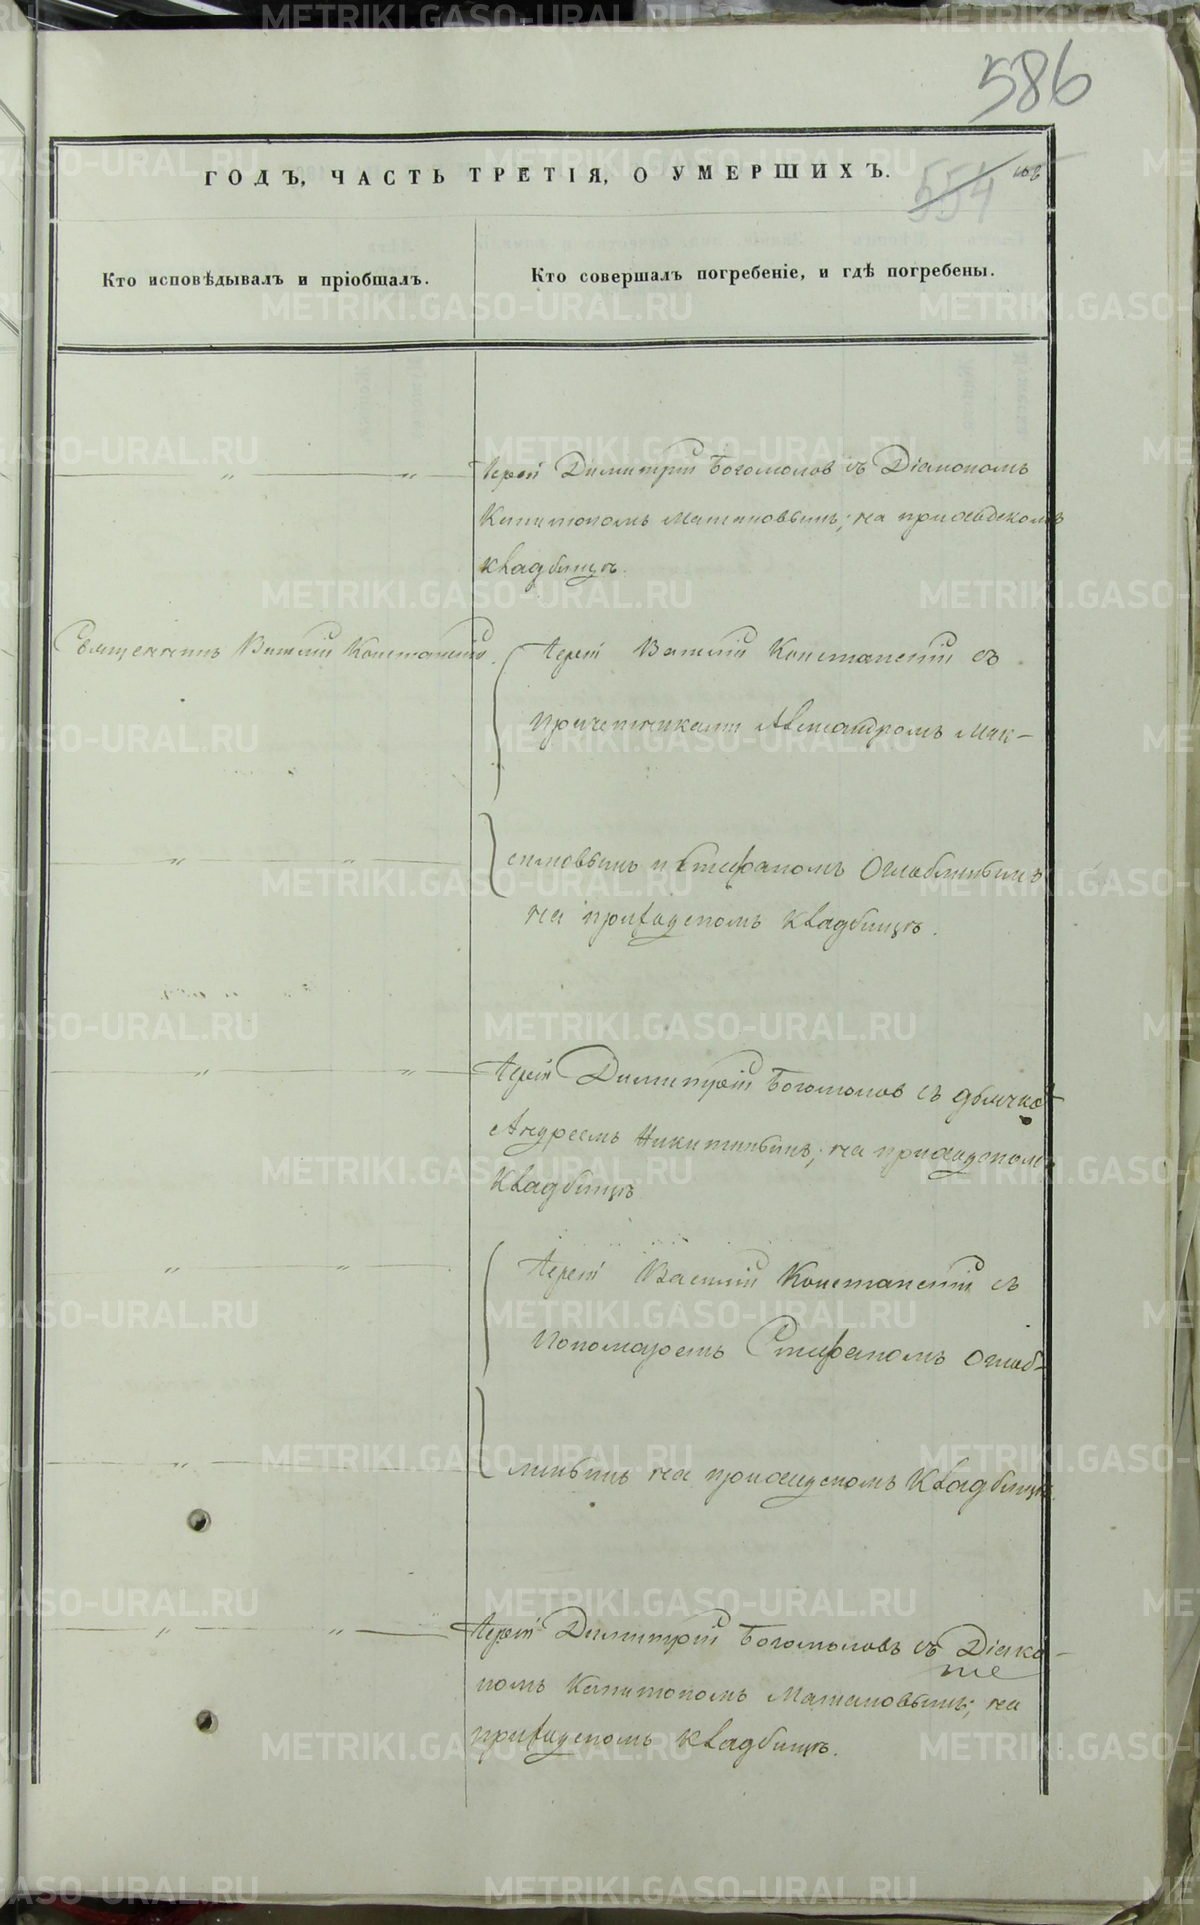 586
ГОДЪ, ЧАСТЬ ТРЕТІЯ, О УМЕРШИХЪ.
554
Кто исповѣдывалъ и пріобщалъ.
Кто совершалъ погребеніе, и гдѣ погребены.
Іерей Димитрій Богомолов съ Діакономъ
Капитономъ на приходскомъ
кладбищѣ.
Священникъ Василій Констанскій.
Іерей Василій Констанскій съ
причетниками Александромъ Мак-
симовымъ и Стефаномъ Оглоблинымъ
на приходскомъ кладбищѣ.
Іерей Димитрій Богомолов съ дьячко
Андреемъ Никитинымъ; на приходском
Кладбищѣ
Іерей Василій Констанскій съ
Пономаремъ Стефаномъ Оглоб-
линымъ на приходскомъ Кладбищѣ.
Іерей Димитрій Богомоловъ съ Діако-
номъ Капитономъ на
приходскомъ кладбищѣ.
METRIKI.GASO-URAL.RU